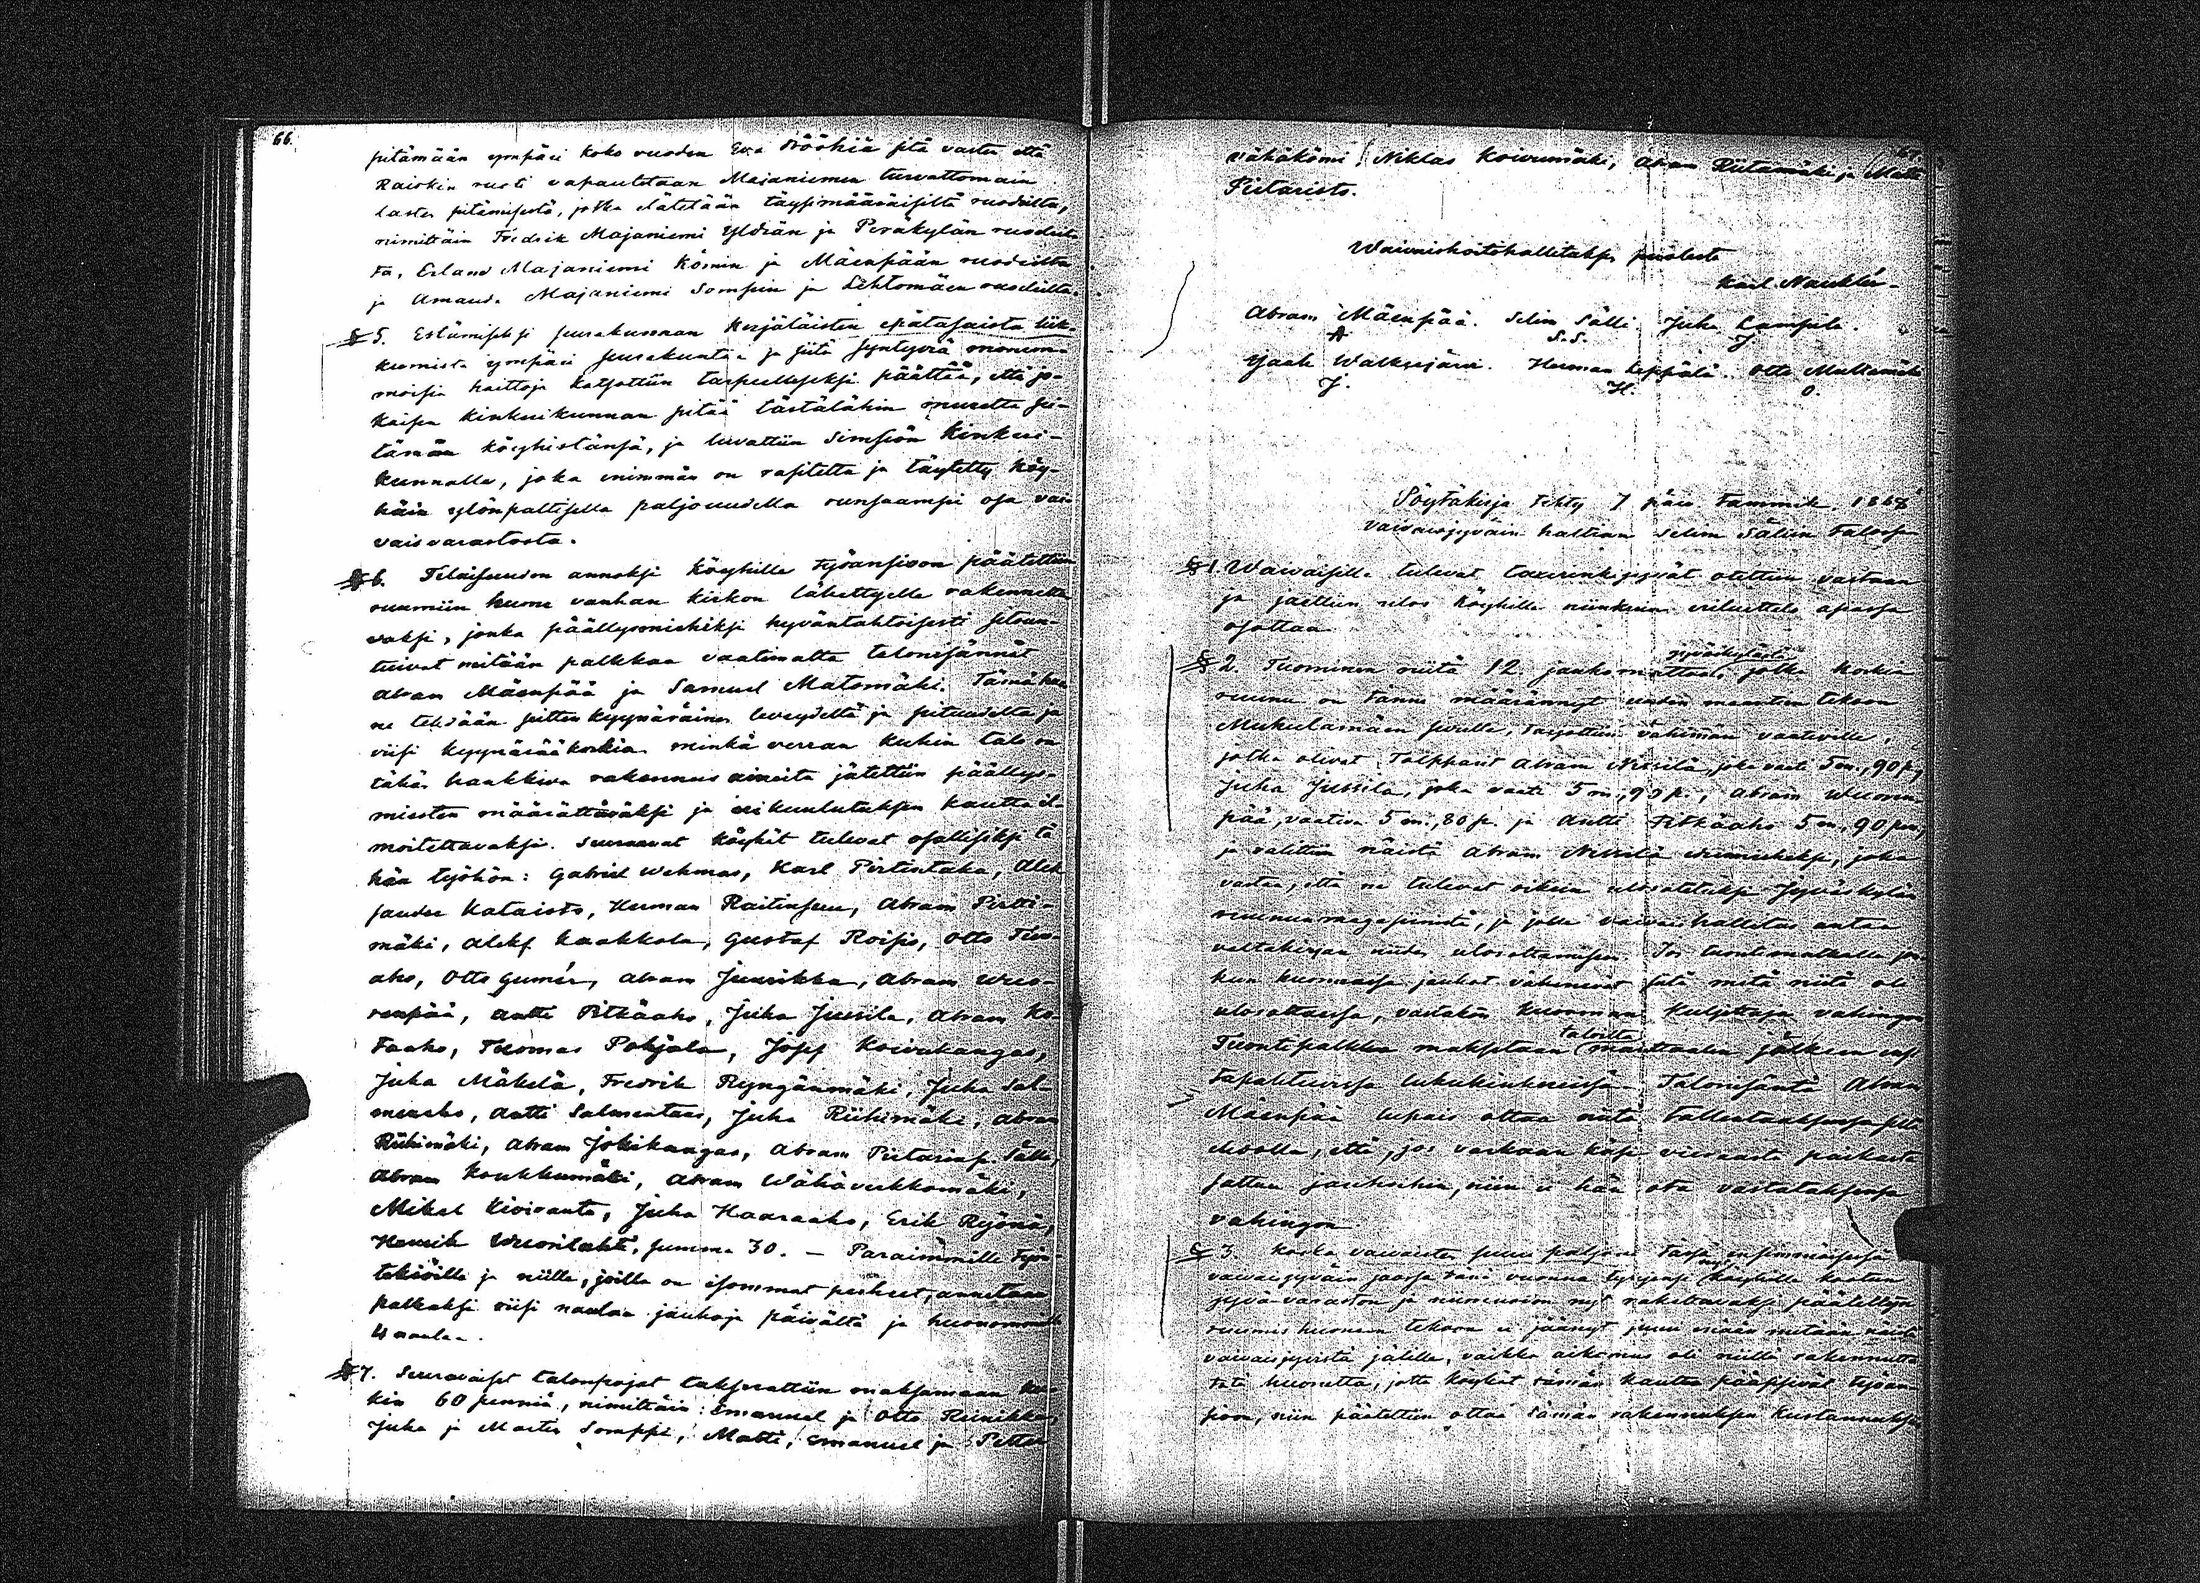 66.
pitämään ympäri koko vuoden Eva Köökiä sitä vasten että
Raiskin ruoti vapautetaan Majaniemen turvattomain
lasten pitämisestä, jotka elätetään täysimääräisiltä ruodeilta,
nimittäin Fredrik Majaniemi Yldiän ja Peräkylän ruodeil-
ta, Erland Majaniemi Kömin ja Mäenpään ruodeilta
ja Amanda Majaniemi Sompin ja Lehtomäen ruodeilta.
§ 5. Estämiseksi seurakunnan kerjäläisten epätasaista liik-
kumista ympäri seurakuntaa ja siitä syntyviä monem-
moisia haittoja katsottiin tarpeelliseksi päättää, että jo-
kaisen kinkerikunnan pitää tästälähin muretta pi-
tämän köyhistänsä, ja luvattiin Simsiön kinkeri-
kunnalle, joka enimmän on rasitettu ja täytetty köy-
häin ylönpalttisella paljoudella runsaampi osa vai-
vaisvarastosta.
§ 6. Tilaisuuden annoksi köyhille työansioon päätettiin
ruumiin huone vanhan kirkon lähettyelle rakennetta-
vaksi, jonka päällysmiehiksi hyväntahtoisesti sitoun-
tuivat mitään palkkaa vaatimatta talonisännät
Abram Mäenpää ja Samuel Matomäki. Tämä huo-
ne tehdään seitten kyynäräinen leveydeltä ja pituudelta ja
viisi kyynärää korkia minkä verran kukin talo on
tähän hankkiva rakennus aineita jätettiin päällys-
miesten määrättäväksi ja erikuulutuksen kautta il-
moitettavaksi. Seuraavat köyhät tulevat osallisiksi tä-
hän työhön: Gabriel Wehmas, Karl Pirtintaka, Alek-
sander Kataisto, Herman Raitinpuu, Abram Pirtti-
mäki, Aleks. Kaakkola, Gustaf Roisio, Otto Tuo-
aho, Otto Gumér, Abram Juurikka, Abram Wuo-
renpää, Antti Pitkäaho, Juha Jussila, Abram Ko-
taaho, Tuomas Pohjola, Josef Koivukangas,
Juha Mäkelä, Fredrik Ryngänmäki, Juha Sal-
menaho, Antti Salmentaus, Juha Riihimäki, Abram
Riihimäki, Abram Jokikangas, Abram Pietarinp. Sälli,
Abram Koukkumäki, Abram Wähäveikkomäki,
Mikel Kiviranta, Juha Haaraaho, Erik Ryömä,
Henrik Wuorilahti, summa 30. – Paraimmille työn-
tekiöille ja niille, joilla on isommat perheet, annetaan
palkaksi viisi naulaa jauhoja päivältä ja huonommille
4 naulaa.
§ 7. Seuraavaiset talonpojat taksorattiin maksamaan ku-
kin 60 penniä, nimittäin: Emanuel ja Otto Reinikka,
Juha ja Marten Somppi, Matti, Emanuel ja Petter
67.
Vähäkömi, Niklas Koivumäki, Abram Riitamäki, ja Matti
Pietaristo.
Waivaishoitohallituksen puolesta
Karl Nauklér.
Abram Mäenpää. Selim Sälli. Juha Lampila.
A S.S. J.
Jaak Walkeejärvi. Herman Leppälä. Otto Mullamäki
J. H. O.
Pöytäkirja tehty 7 päiv. Tammik. 1868
vaivaisjyväin haltian Selim Sällin talossa
§ 1. Waivaisille tulevat lainajyvät otettiin vastaan
ja jaettiin ulos köyhille niinkuin eriluettelo apassa
osottaa.
§ 2. Tuominen niitä 12 jauho mattoa, jotka korkia
Jyväskylästä
ruunu on tänne määrännyt uuden maantien tekoon
Mukulamäen sivulle, tarjottiin vähimän vaativille,
jotka olivat Tolpparit Abram Nissilä, joka vaati 5 m., 90 p.,
Juha Jussila, joka vaati 5 m., 90 p., Abram Wuoren-
pää, vaativa 5 m., 80 p. ja Antti Pitkäaho 5 m., 90 pen.,
ja valittiin näistä Abram Nissilä urimieheksi, joka
vastaa, että ne tulevat oikein ulosotetuksi Jyväskylän
ruunun magasiinista, ja jolle vaivaishallitus antaa
valtakirjan niiden ulosottamiseen. Jos tuontimatkalla jon-
kun kuormassa jauhot vähenevät siitä mitä niitä oli
ulosottaessa, vastakoon kuorman kuljettaja vahingon
Tuontipalkka maksetaan manttaalin jälkeen ens.
taloilta
tapahtuvissa lukukinkereissä. Talonisäntä Abram
Mäenpää lupais ottaa niitä talteutaaksensa sillä
ehdolla, että, jos varkaan käsi vieraasta paikasta
sattuu jauhoihin, niin ei hän ota vastataksensa
vahingon
§ 3. Koska vaivaisten suuri paljous tässä ensimmäisessä
vaivaisjyväin jaossa tänä vuonna tyhjensi köyhille kootun
jyvä-varaston ja nimenomaan nyt rakettavaksi päätettyn
ruumishuoneen tekoon ei jäänyt juuri enään mitään näitä
vaivaisjyvistä jälille, vaikka aikomus oli niillä rakennuttaa
tätä huonetta, jotta köyhät tämän kautta pääsisivät työan-
sioon, niin päätettiin ottaa tämän rakennuksen kustannuksia